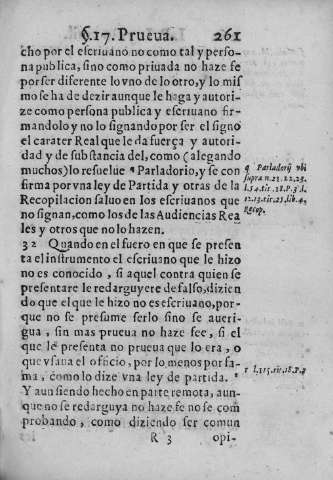 §.17. Prueua. 261
cho por el escriuano no como tal y perso-
na publica, sino como priuada no haze fe
por ser diferente lo vno de lo otro, y lo mis
mo se ha de dezir aunque le haga y autori-
ze como persona publica y escriuano fir-
mandolo y no lo signando por ser el signo
el carater Real que le da fuerça y autori-
dad y de substancia del, como (alegando
muchos) lo resuelue q Parladorio, y se con
firma por vna ley de Partida y otras de la
Recopilacion saluo en los escriuanos que
no signan, como los de las Audiencias Rea
les y otros que no lo hazen.
q Parladorij vbi
supra n.21.22.23.
l.54.tit.18.P.3.l.
12.13.tit.25.lib.4.
Recop.
32 Quando en el fuero en que se presen
ta el instrumento el escriuano que le hizo
no es conocido, si aquel contra quien se
presentare le redarguyere de falso, dizien
do que el que le hizo no es escriuano, por-
que no se presume serlo sino se aueri-
gua, sin mas prueua no haze fee, si el
que le presenta no prueua que lo era, o
que vsaua el officio, por lo menos por fa-
ma, como lo dize vna ley de partida. r
r l.115.tit.18.P.3
Y aun siendo hecho en parte remota, aun-
que no se redarguya no haze fe no se com
probando, como diziendo ser comun
R 3 opi-